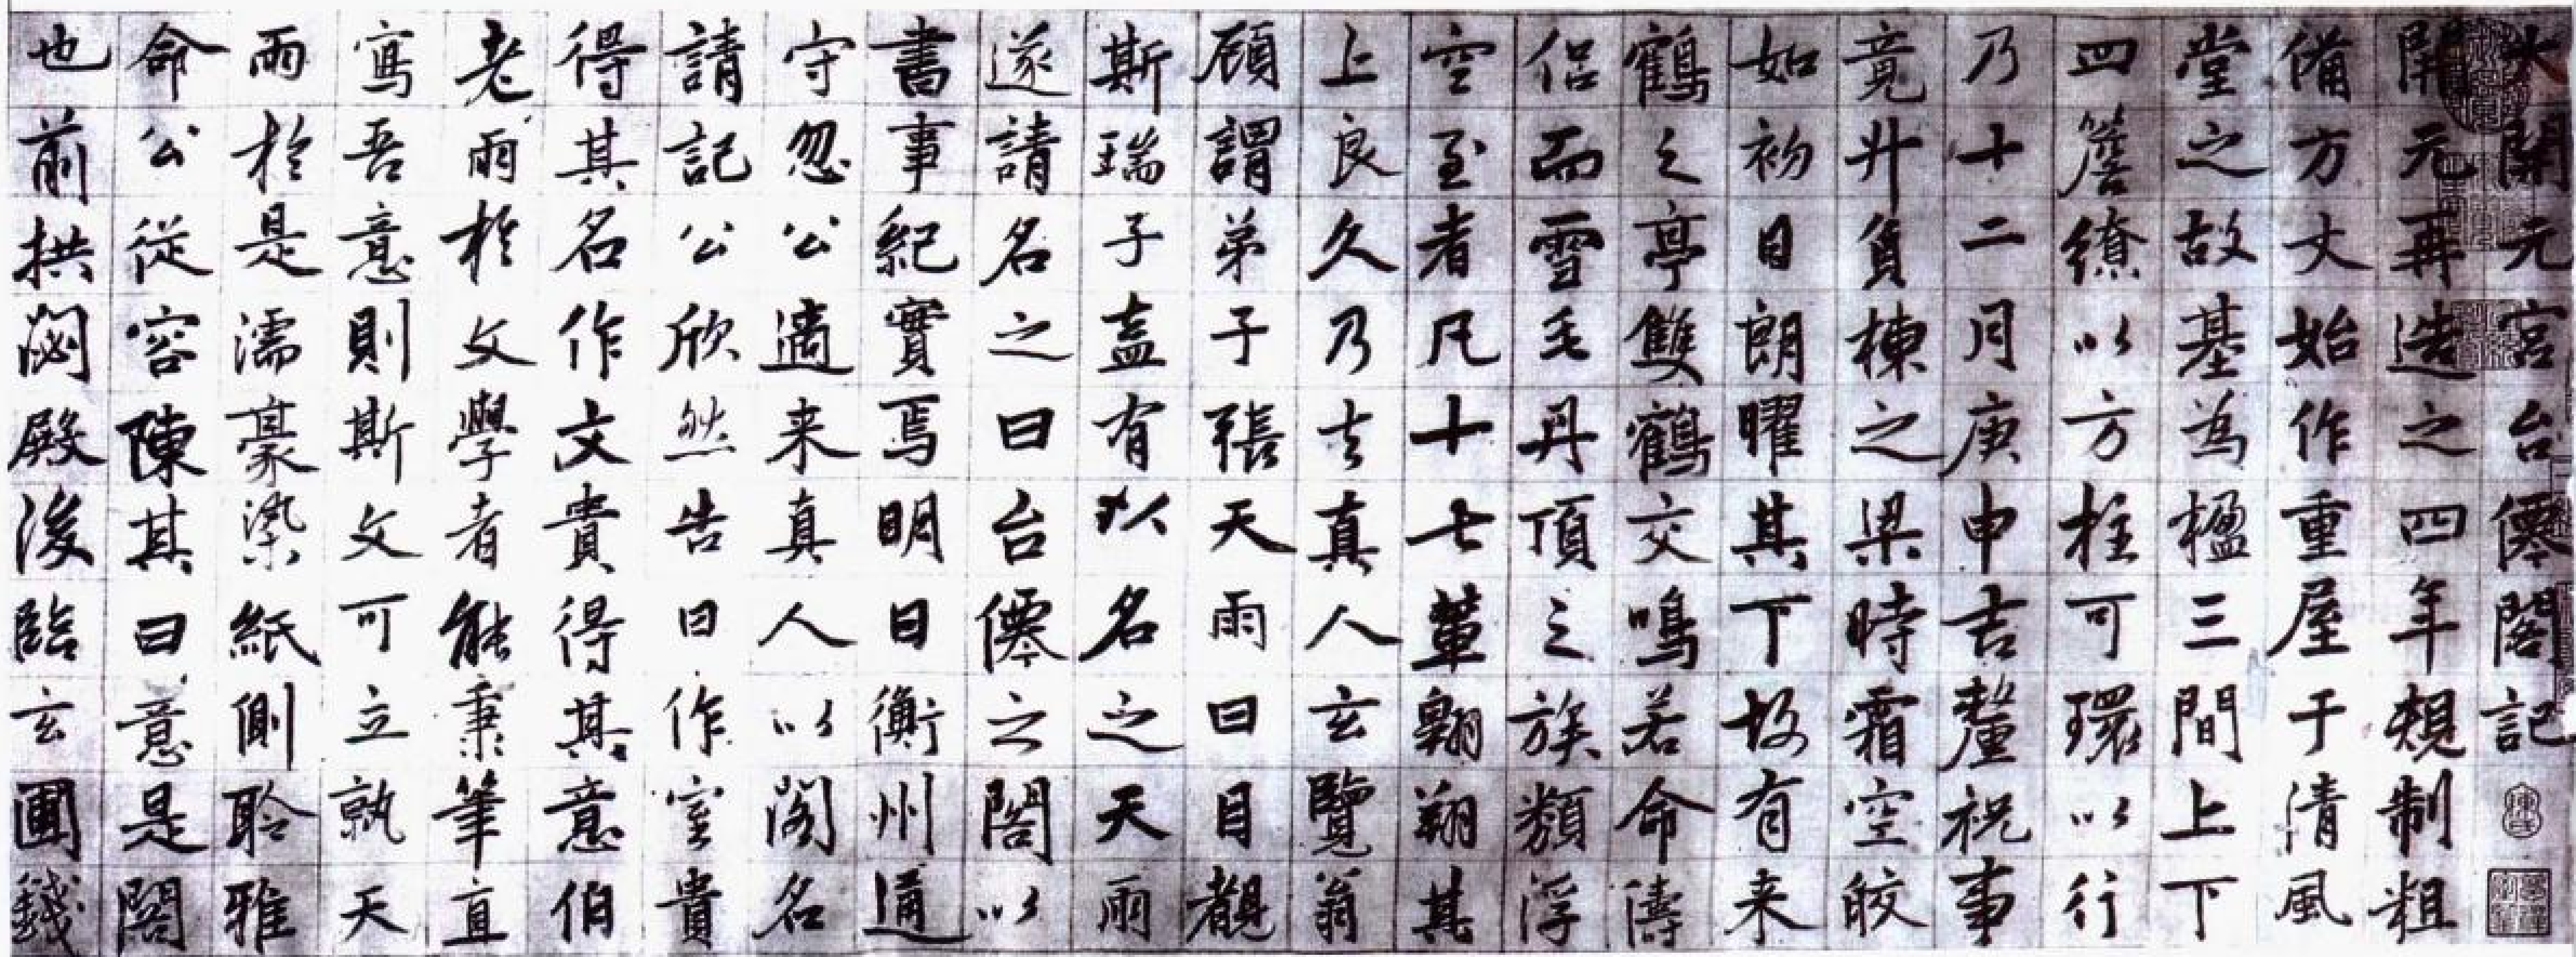 大開元宮台僊閣記
開元再造之四年規制粗
備方丈始作重屋于清風
堂之故基為楹三間上下
四簷繚以方柱可環以行
乃十二月庚申吉釐祝事
竟升負棟之梁時霜空皎
如初日朗曜其下故有来
鶴之亭雙鶴交鳴若命儔
侶而雪毛丹頂之族類浮
空至者凡十七輩翱翔其
上良久乃去真人玄覽翁
顧謂弟子張天雨曰目覩
斯瑞子盍有以名之天雨
遂請名之曰台僊之閣以
書事紀實焉明日衡州通
守忽公適来真人以閣名
請記公欣然告曰作室貴
得其名作文貴得其意伯
老雨於文學者能秉筆直
寫吾意則斯文可立孰天
雨於是濡豪染紙側聆雅
命公從容陳其曰意是閣
也前拱閟殿後臨玄圃錢